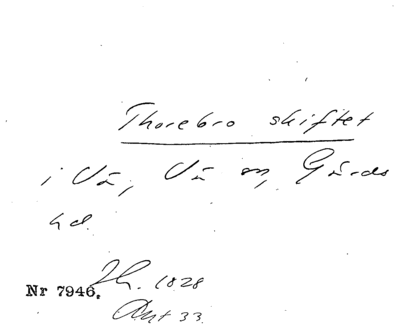 Thorebro skiftet
i Vä, Vä sn, Gärds
hd.
Nr 7946. Jh. 1828
Akt 33.